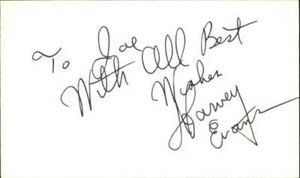 To Joe
With All Best
Wishes
Harvey
Evans